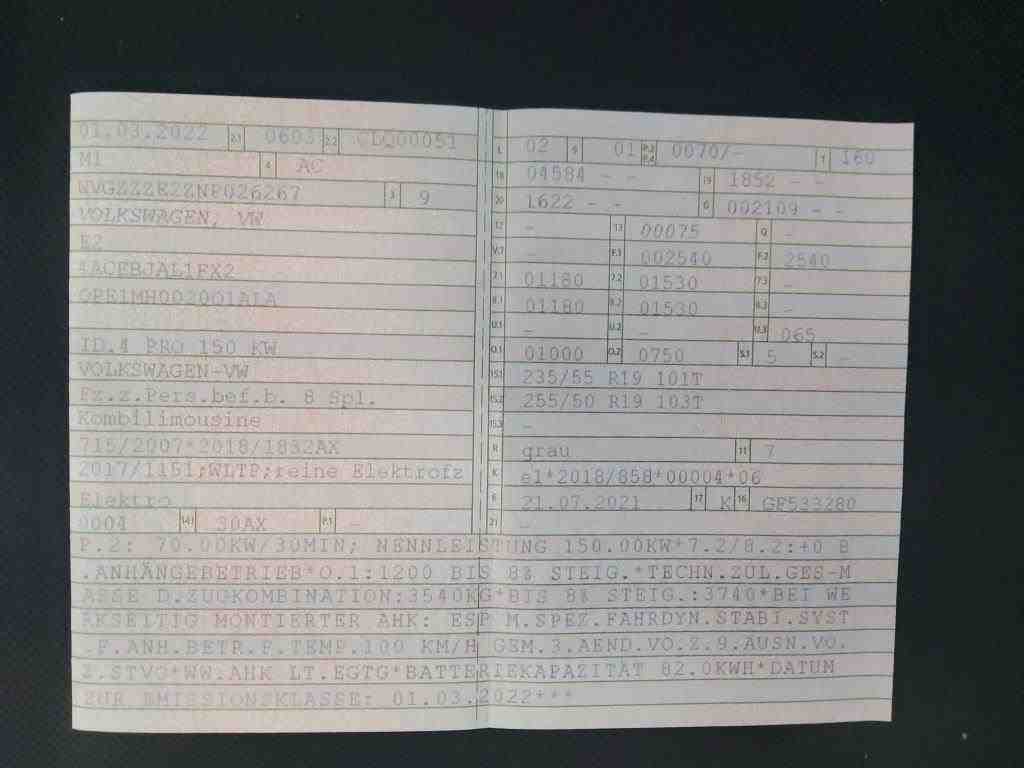 01.03.2022 2.1 0603 2.2 CLQ00051
M1 4 AC
WVGZZZE2ZNP026267 3 9
VOLKSWAGEN, VW
E2
4AQFBJAL1FX2
ID.4 PRO 150 KW
VOLKSWAGEN-VW
Fz.z.Pers.bef.b. 8 Spl.
Kombilimousine
715/2007*2018/1832AX
2017/1151;WLTP;reine Elektrofz
Elektro
0004 14.1 30AX P.1 -
L 02 9 01 P.2 P.4 0070/- T 160
18 04584 - - 19 1852 - -
20 1622 - - G 002109 - -
12 - 13 00075 Q -
V.7 - F.1 002540 F.2 2540
7.1 01180 7.2 01530 7.3 -
8.1 01180 8.2 01530 8.3 -
U.1 - U.2 - U.3 065
O.1 01000 O.2 0750 S.1 5 S.2 -
15.1 235/55 R19 101T
15.2 255/50 R19 103T
15.3 -
R grau 11 7
K e1*2018/858*00004*06
6 21.07.2021 17 K 16 GF533280
21 -
P.2: 70.00KW/30MIN; NENNLEISTUNG 150.00KW*7.2/8.2:+0 B
.ANHÄNGEBETRIEB*O.1:1200 BIS 8% STEIG.*TECHN.ZUL.GES-M
ASSE D.ZUGKOMBINATION:3540KG*BIS 8% STEIG.:3740*BEI WE
RKSEITIG MONTIERTER AHK: ESP M.SPEZ.FAHRDYN.STABI.SYST
.F.ANH.BETR.F.TEMP.100 KM/H GEM.3.AEND.VO.Z.9.AUSN.VO.
Z.STVO*WW.AHK LT.EGTG*BATTERIEKAPAZITÄT 82.0KWH*DATUM
ZUR EMISSIONSKLASSE: 01.03.2022***